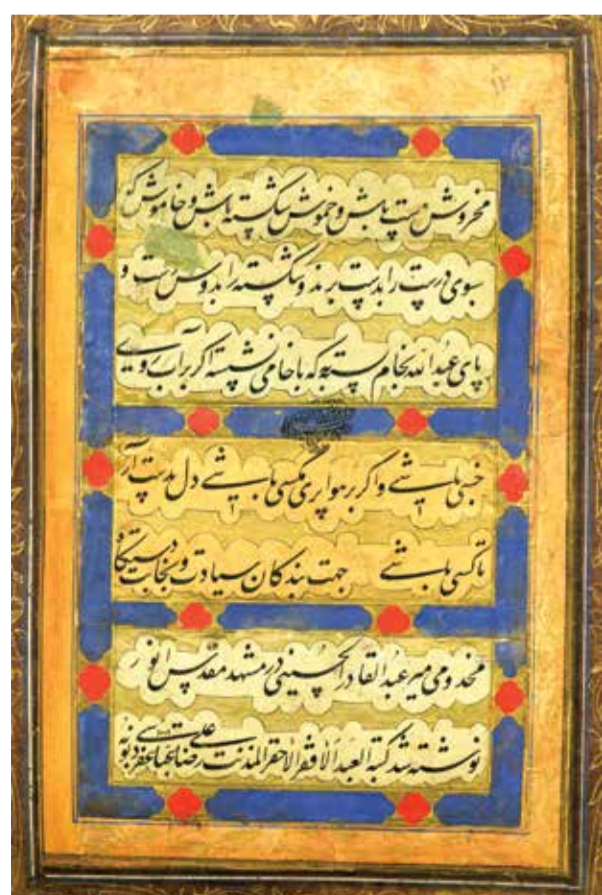 ۱۲
مخروش مست باش و خموش شکسته باش و خاموش که
سبوی درست را بدست برند و شکسته را بدوش دست و
پای عبدالله بخام بسته به که با خامی نشسته اگر بر آب روی
خسی باشی و اگر بر هوا پری مگسی باشی دل بدست آر
تا کسی باشی جهت بندگان سیادت و نجابت دستگاه
مخدومی میر عبدالقادر الحسینی در مشهد مقدس انور
نوشته شد کتبه العبد الافقر الاحقر المذنب علی رضا غفر ذنوبه